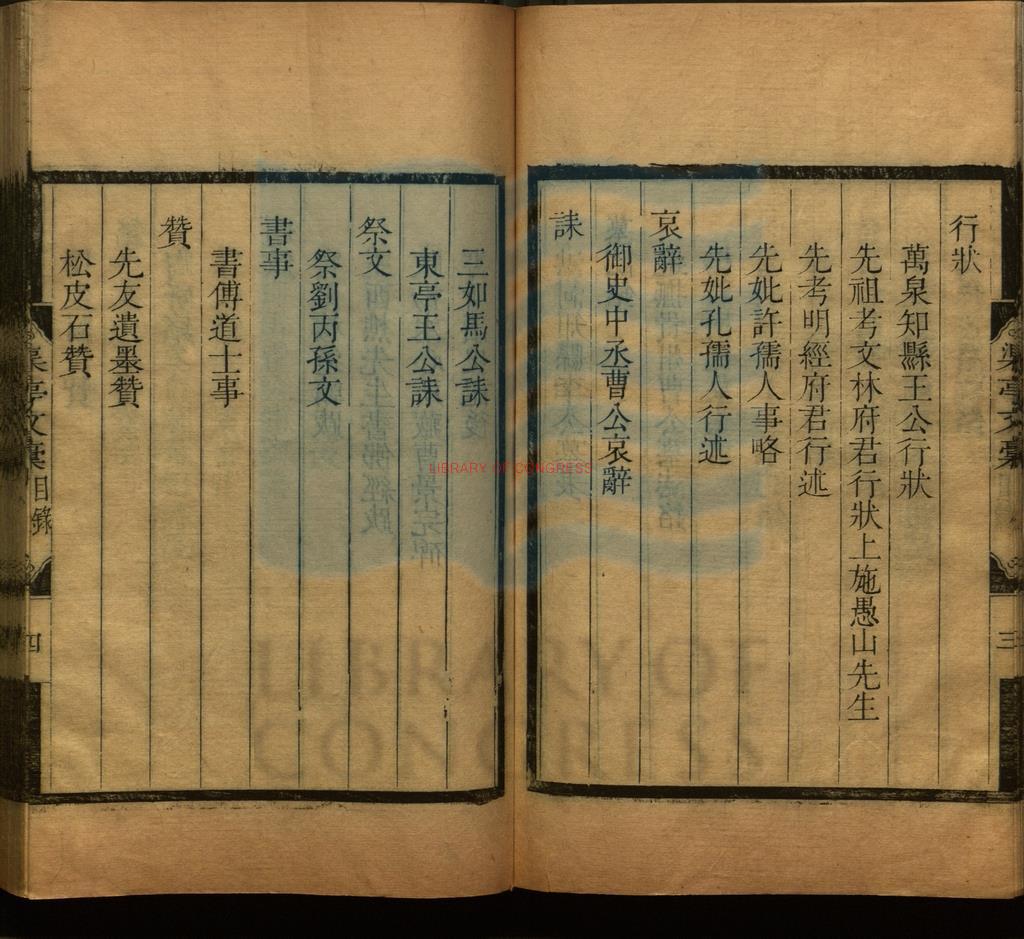 行狀
萬泉知縣王公行狀
先祖考文林府君行狀上施愚山先生
先考明經府君行述
先妣許孺人事略
先妣孔孺人行述
哀辭
御史中丞曹公哀辭
誄
三如馬公誄
東亭王公誄
祭文
祭劉丙孫文
書事
書傅道士事
贊
先友遺墨贊
松皮石贊
渠亭文稾目錄
四
三
LIBRARY OF CONGRESS
LIBRARY OF CONGRESS